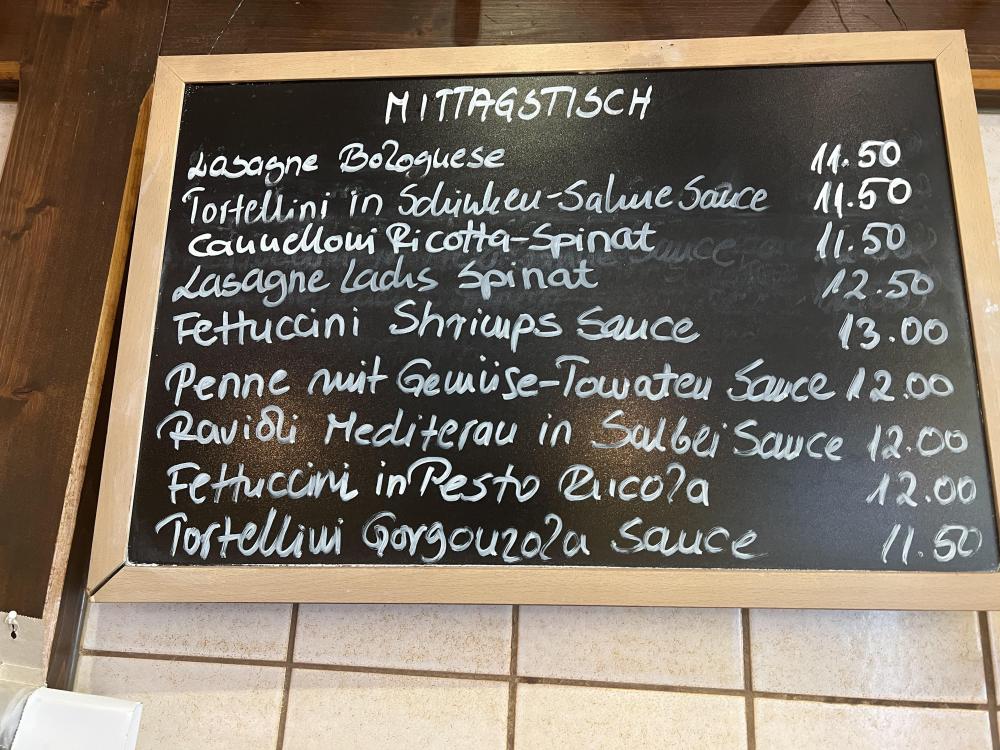 MITTAGSTISCH
Lasagne Bolognese 11.50
Tortellini in Schinken-Sahne Sauce 11.50
Cannelloni Ricotta-Spinat 11.50
Lasagne Lachs Spinat 12.50
Fettuccini Shrimps Sauce 13.00
Penne mit Gemüse-Tomaten Sauce 12.00
Ravioli Mediteran in Salbei Sauce 12.00
Fettuccini in Pesto Rucola 12.00
Tortellini Gorgonzola Sauce 11.50